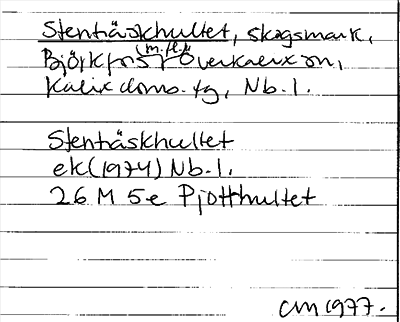 Stenträskhultet, skogsmark,
Björkfors (m.fl.) Överkalix sn,
Kalix doms. tg, Nb. l.
Stenträskhultet
ek (1974) Nb. l.
26 M 5e Pjotthultet
CM 1977.